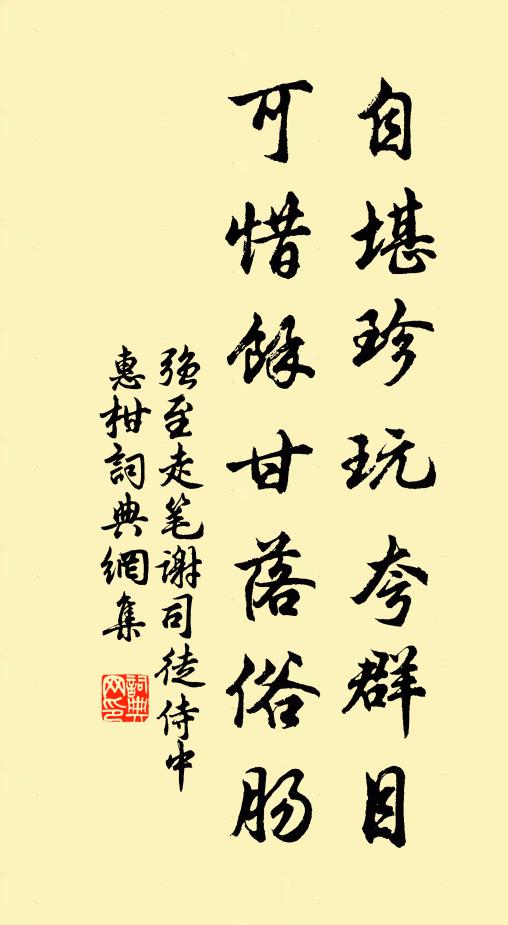 自堪珍玩夸群目
可惜餘甘落俗肠
强至走笔谢司徒侍中
惠柑詞典網集
詞典网印